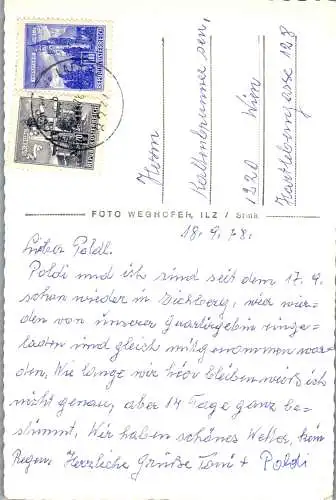 Herrn
Kaltenbrunner sen.
1220 Wien
Hartlebengasse 128
FOTO WEGHOFER, ILZ / Stmk.
18. 9. 78.
Lieber Poldl.
Poldi und ich sind seit dem 17. 9.
schon wieder in Dichberg, wir wur-
den von unserer Quartirgebin einge-
laden und gleich mitgenommen wor-
den. Wie lange wir hier bleiben weiß ich
nicht genau, aber 14 Tage ganz be-
stimmt. Wir haben schönes Wetter, kein
Regen Herzliche Grüße Toni + Poldi